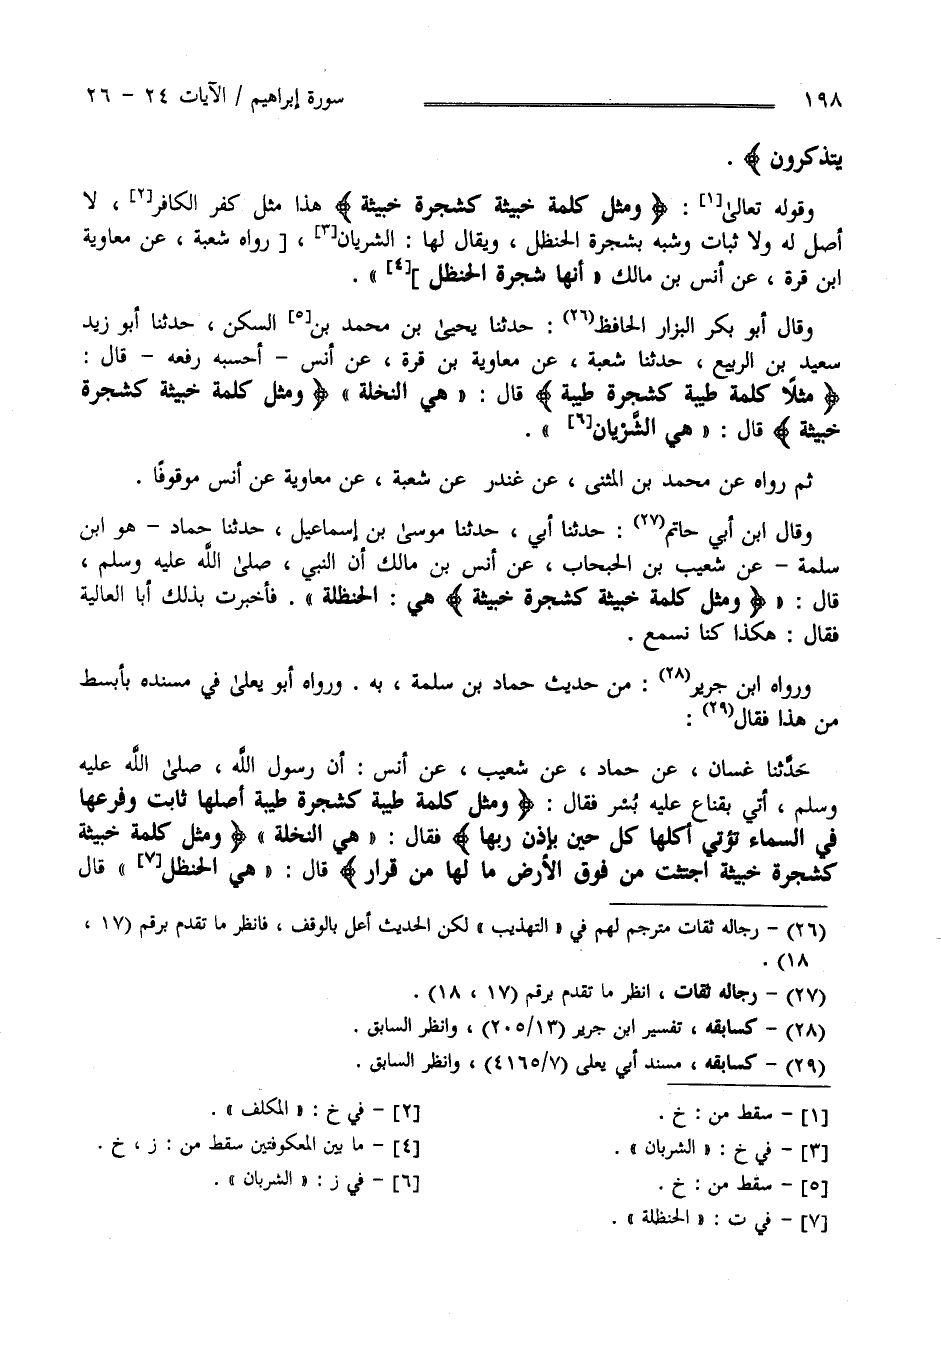 ١٩٨ سورة إبراهيم / الآيات ٢٤ - ٢٦
يتذكرون ﴾ .
وقوله تعالىٰ[١] : ﴿ ومثل كلمة خبيثة كشجرة خبيثة ﴾ هذا مثل كفر الكافر[٢] ، لا
أصل له ولا ثبات وشبه بشجرة الحنظل ، ويقال لها : الشريان[٣] ، [ رواه شعبة ، عن معاوية
ابن قرة ، عن أنس بن مالك « أنها شجرة الحنظل ][٤] » .
وقال أبو بكر البزار الحافظ(٢٦) : حدثنا يحيىٰ بن محمد بن[٥] السكن ، حدثنا أبو زيد
سعيد بن الربيع ، حدثنا شعبة ، عن معاوية بن قرة ، عن أنس - أحسبه رفعه - قال :
﴿ مثلًا كلمة طيبة كشجرة طيبة ﴾ قال : « هي النخلة » ﴿ ومثل كلمة خبيثة كشجرة
خبيثة ﴾ قال : « هي الشَّرْيان[٦] » .
ثم رواه عن محمد بن المثنى ، عن غندر عن شعبة ، عن معاوية عن أنس موقوفًا .
وقال ابن أبي حاتم(٢٧) : حدثنا أبي ، حدثنا موسىٰ بن إسماعيل ، حدثنا حماد - هو ابن
سلمة - عن شعيب بن الحبحاب ، عن أنس بن مالك أن النبي ، صلىٰ اللَّه عليه وسلم ،
قال : « ﴿ ومثل كلمة خبيثة كشجرة خبيثة ﴾ هي : الحنظلة » . فأخبرت بذلك أبا العالية
فقال : هكذا كنا نسمع .
ورواه ابن جرير(٢٨) : من حديث حماد بن سلمة ، به . ورواه أبو يعلىٰ في مسنده بأبسط
من هذا فقال(٢٩) :
حَدَّثنا غسان ، عن حماد ، عن شعيب ، عن أنس : أن رسول اللَّه ، صلىٰ اللَّه عليه
وسلم ، أتي بقناع عليه بُسْر فقال : ﴿ ومثل كلمة طيبة كشجرة طيبة أصلها ثابت وفرعها
في السماء تؤتي أكلها كل حين بإذن ربها ﴾ فقال : « هي النخلة » ﴿ ومثل كلمة خبيثة
كشجرة خبيثة اجتثت من فوق الأرض ما لها من قرار ﴾ قال : « هي الحنظل[٧] » قال
(٢٦) - رجاله ثقات مترجم لهم في « التهذيب » لكن الحديث أعل بالوقف ، فانظر ما تقدم برقم (١٧ ،
١٨) .
(٢٧) - رجاله ثقات ، انظر ما تقدم برقم (١٧ ، ١٨) .
(٢٨) - كسابقه ، تفسير ابن جرير (٢٠٥/١٣) ، وانظر السابق .
(٢٩) - كسابقه ، مسند أبي يعلى (٤١٦٥/٧) ، وانظر السابق .
[١] - سقط من : خ . [٢] - في خ : « المكلف » .
[٣] - في خ : « الشربان » . [٤] - ما بين المعكوفتين سقط من : ز ، خ .
[٥] - سقط من : خ . [٦] - في ز : « الشربان » .
[٧] - في ت : « الحنظلة » .